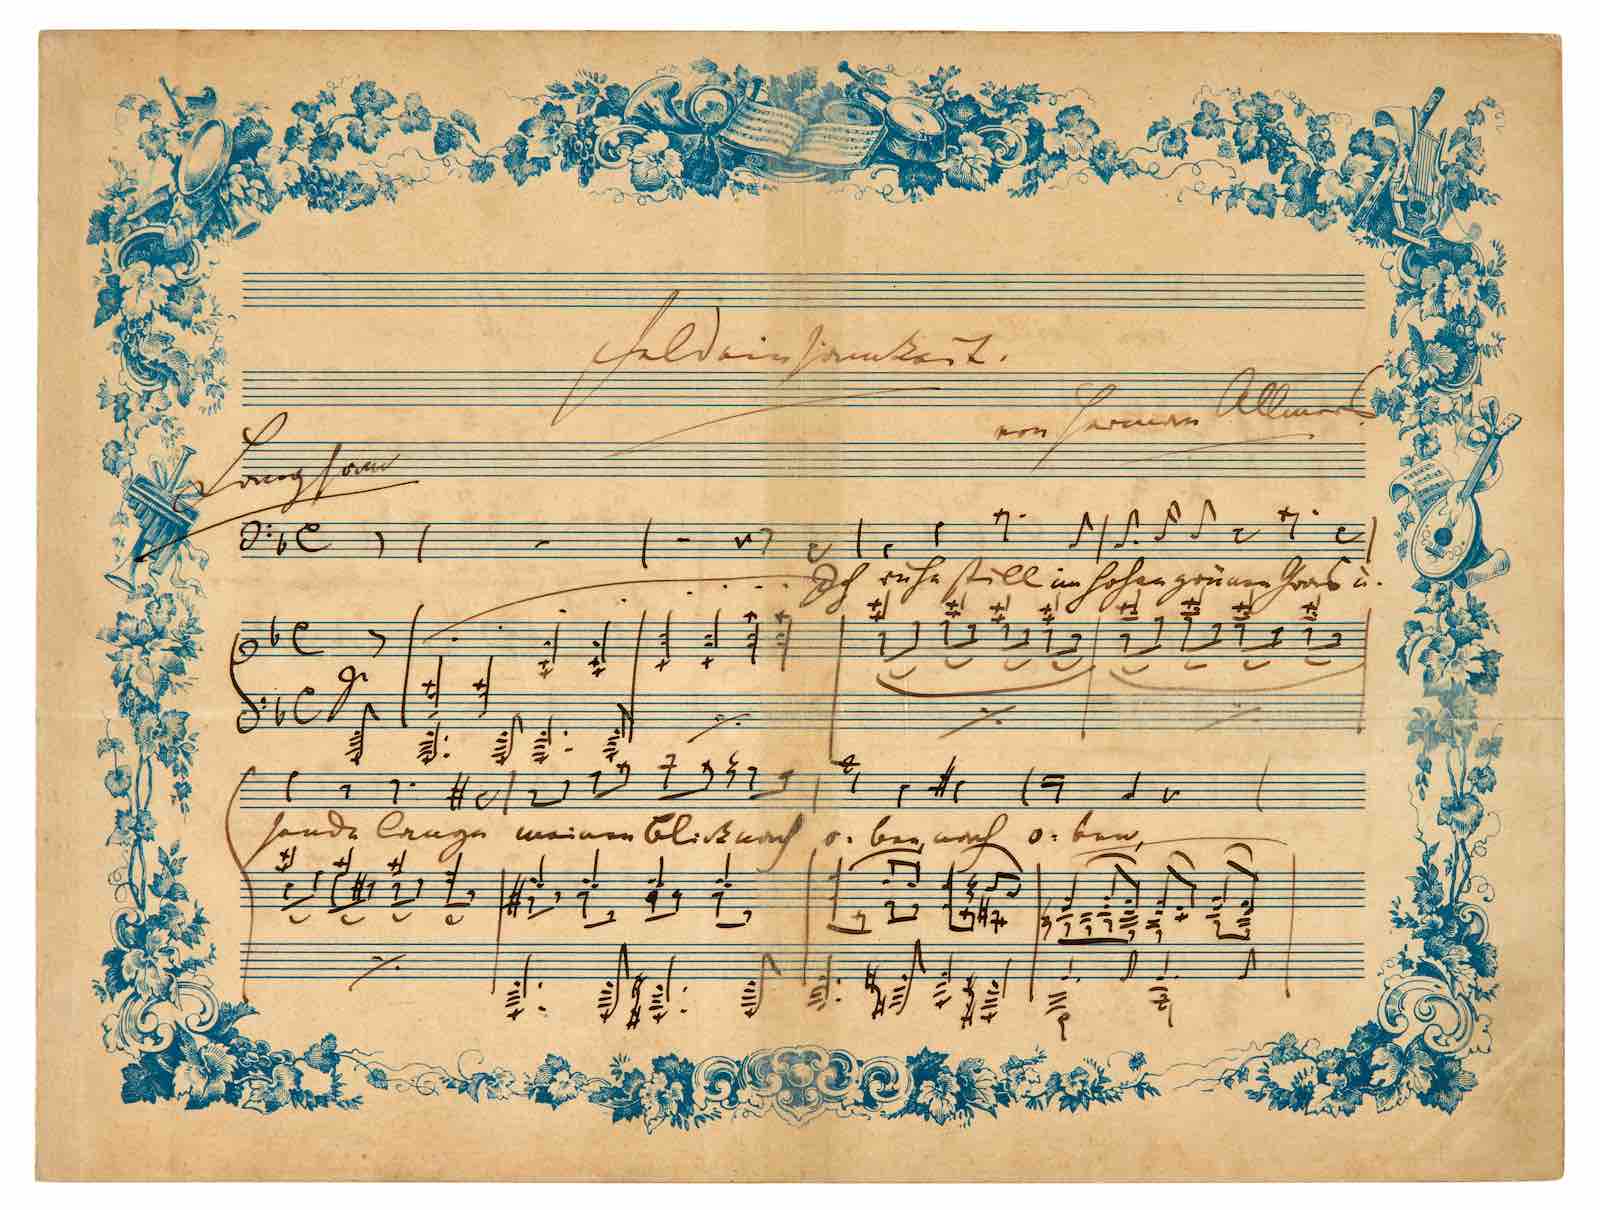 Feldeinsamkeit.
von Herman Allmers.
Langsam
Ich ruhe still im hohen grünen Gras u.
sende lange meinen Blick nach o- ben, nach o- ben,